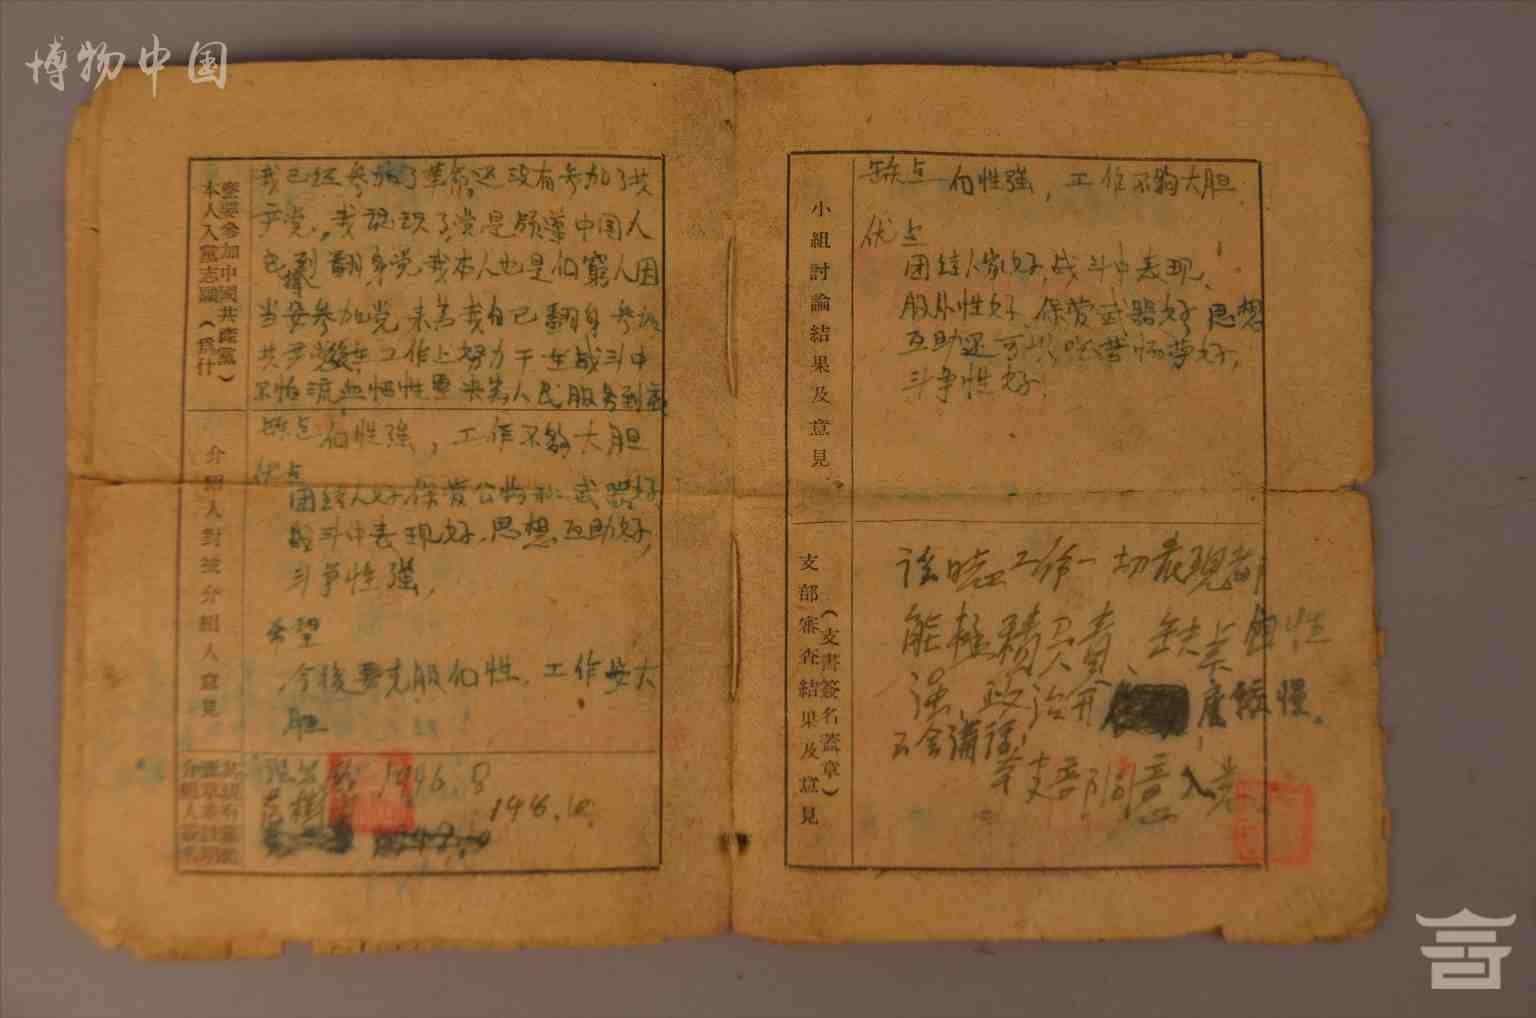 博物中国
本人入黨志願（爲什
麼要參加中國共產黨）
我已经参加了革命,还没有参加了共
产党,我认识了党是领导中国人
民到翻身党,我本人也是们窮人因
当要参加党,来为我自己翻身参加
共产党要在工作上努力干在战斗中
不怕流血牺牲要求为人民服务到底
介紹人對被介紹人意見
缺点 们性强，工作不夠大胆
优点
团结人好,保管公物和武器好
战斗中表现好,思想互助好,
斗争性强,
希望
今後要克服们性,工作要大
胆
介紹人簽名
1946.8
小組討論結果及意見
缺点 们性强，工作不夠大胆
优点
团结人家好,战斗中表现、
服从性好、保管武器好 思想
互助还可以,吃苦怀学好,
斗争性好.
支部審查結果及意見
（支書簽名蓋章）
工作一切表现都
能極積负责、缺点 個性
强、政治 度緩慢。
不会講話!
支部同意入党